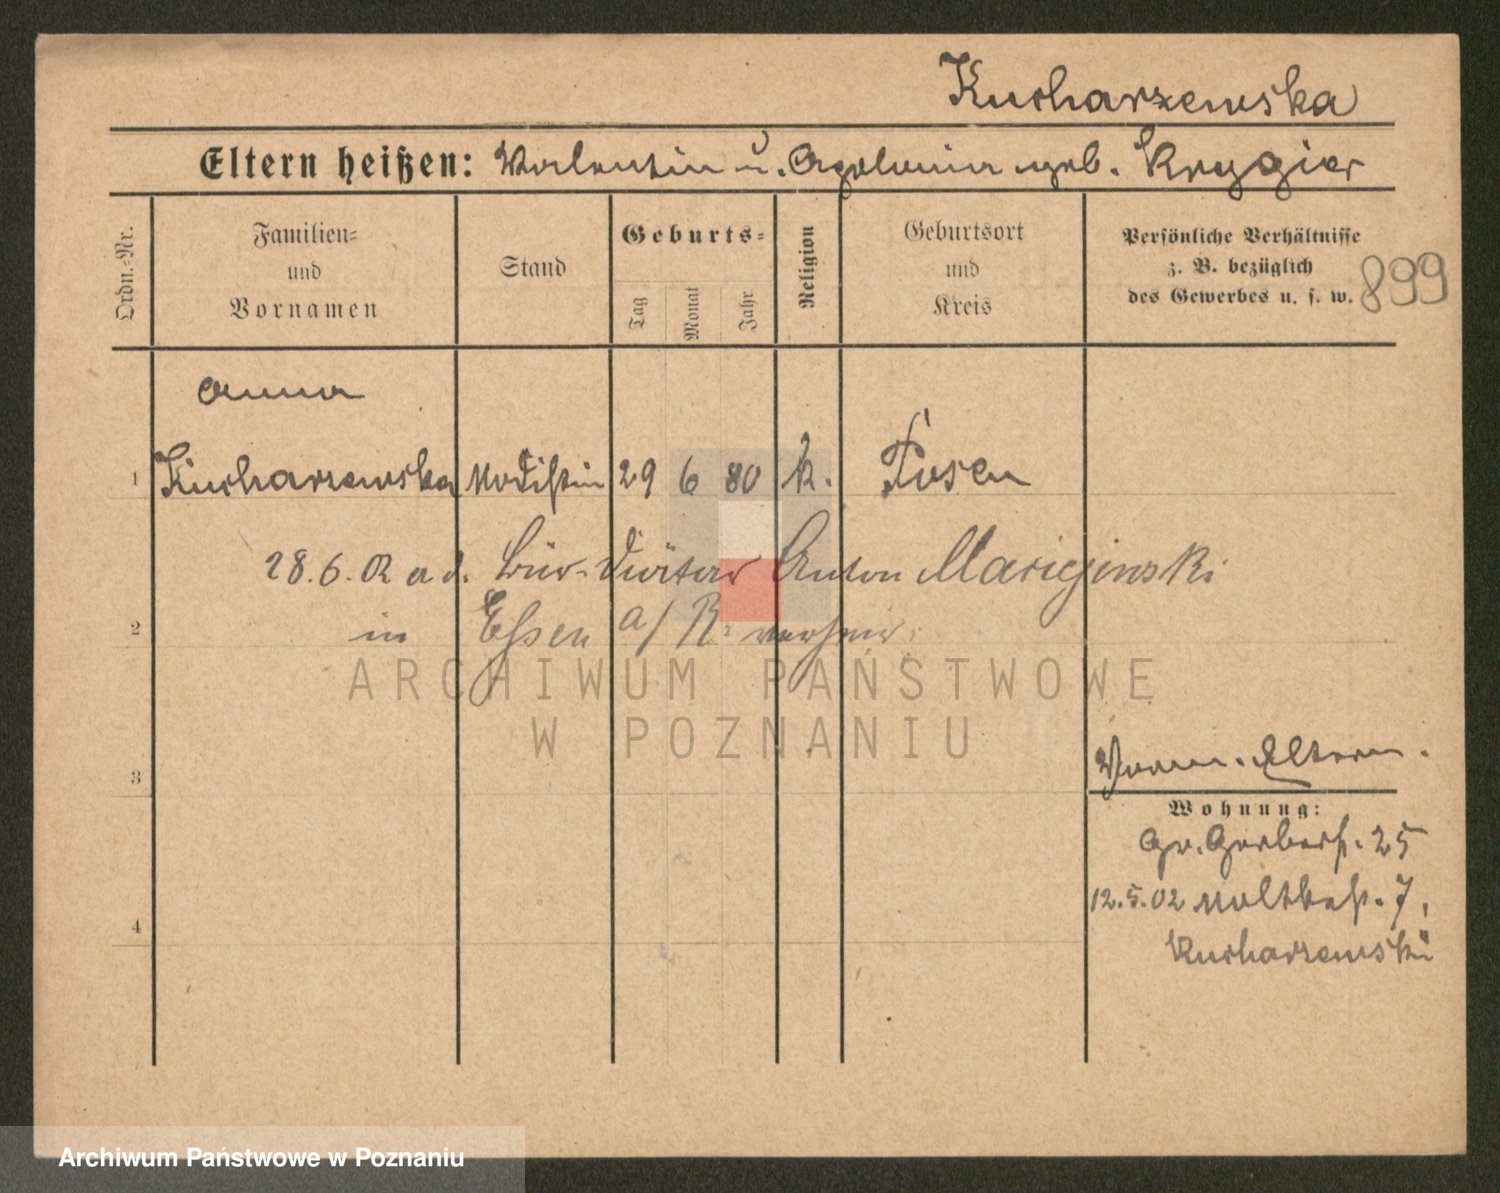 Kucharzewska
Eltern heißen: Valentin u. Apolonia geb. Kryger
Ordn.-Nr.
Familien-
und
Vornamen
Stand
Geburts-
Tag
Monat
Jahr
Religion
Geburtsort
und
Kreis
Persönliche Verhältnisse
z. B. bezüglich
des Gewerbes u. s. w.
899
Anna
1 Kucharzewska Modistin 29 6 80 k. Posen
28.6.02 a. d. Bür. Diätar Anton
2 in Essen a/R. verheir.
ARCHIWUM PAŃSTWOWE
W POZNANIU
3
Eltern.
Wohnung:
Gr. Gerberst. 25
4
12.5.02 Moltkest. 7.
Kucharzewski
Archiwum Państwowe w Poznaniu